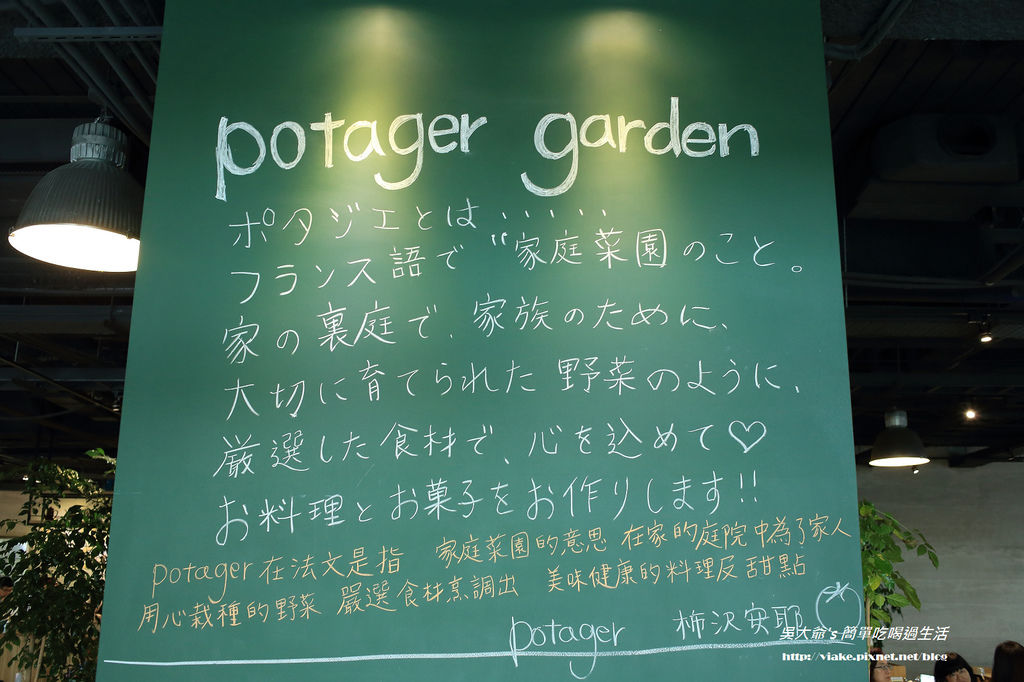 potager garden
ポタジエとは.....
フランス語で“家庭菜園のこと。
家の裏庭で、家族のために、
大切に育てられた野菜のように、
厳選した食材で、心を込めて♡
お料理とお菓子をお作りします!!
potager在法文是指 家庭菜園的意思 在家的庭院中為了家人
用心栽種的野菜 嚴選食材烹調出 美味健康的料理反甜點
potager 柿沢安耶
吳大爺's 簡單吃喝過生活
http://viake.pixnet.net/blog